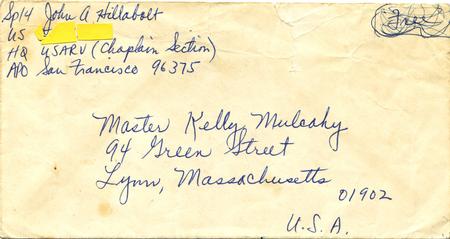 Sp/4 John A Hillabolt
US
HQ USARV (Chaplain Section)
APO San Francisco 96375
Free
Master Kelly Mulcahy
94 Green Street
Lynn, Massachusetts
01902
U.S.A.